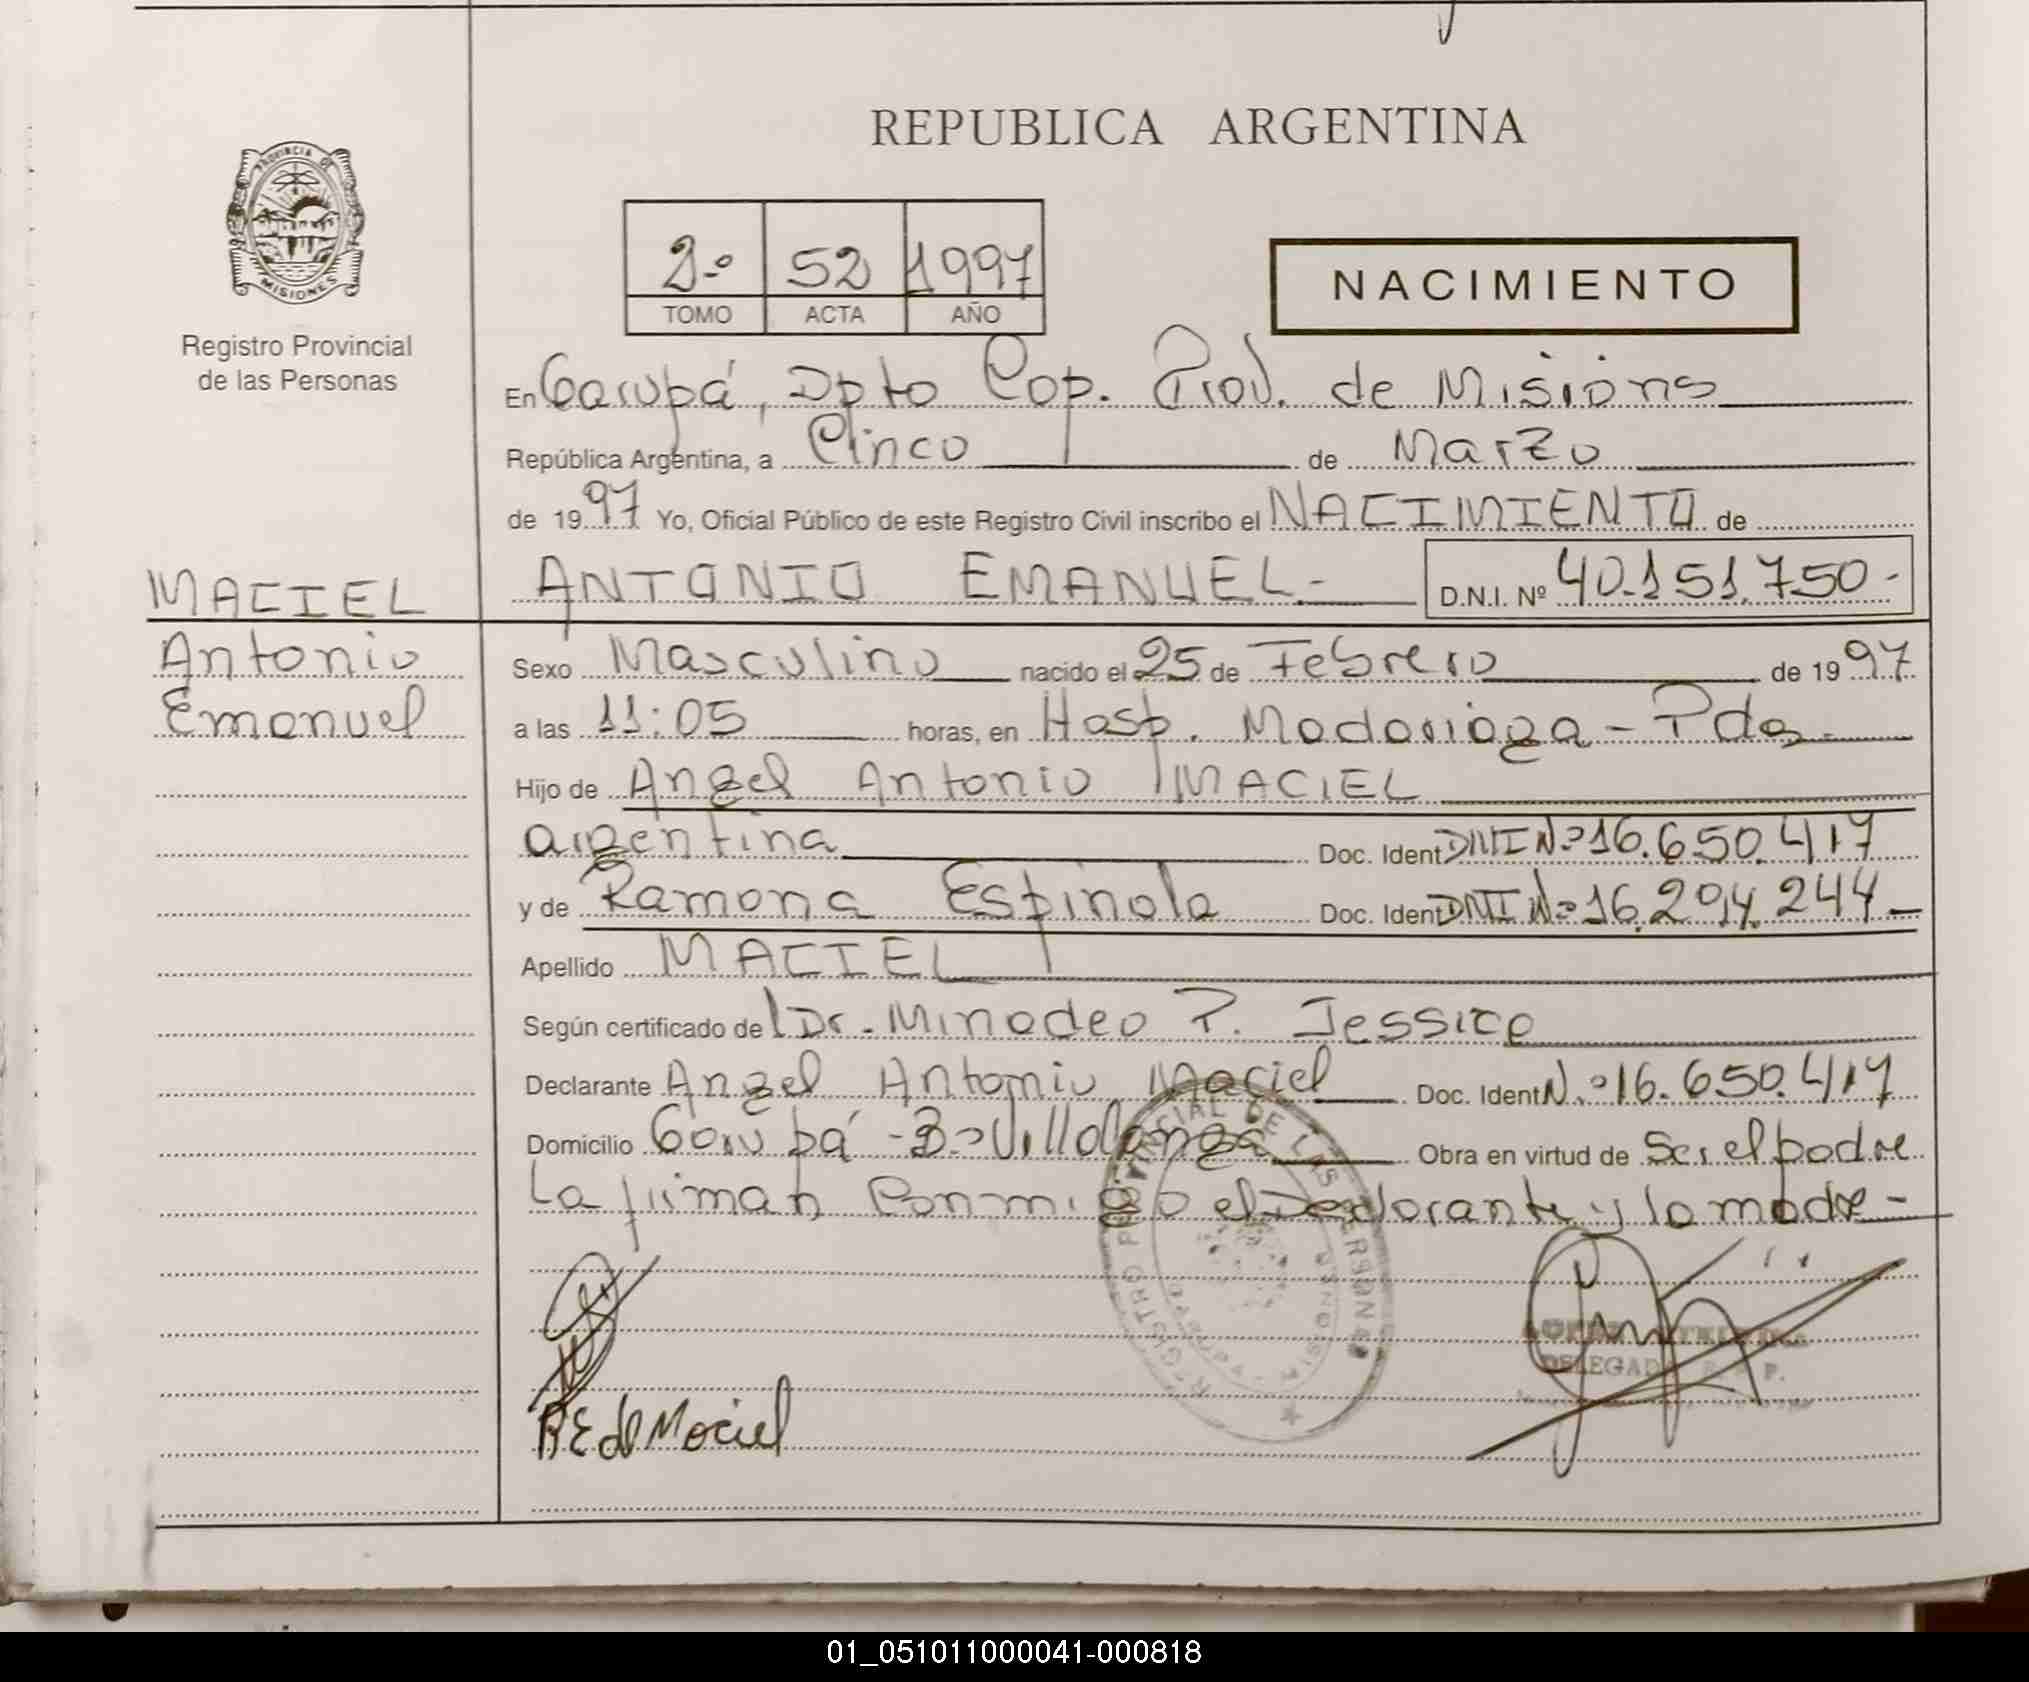 REPUBLICA ARGENTINA
PROVINCIA DE
MISIONES
Registro Provincial
de las Personas
2º 52 1997
TOMO ACTA AÑO
NACIMIENTO
En Garupá, Dpto Cap. Prov. de Misions
República Argentina, a Cinco de Marzo
de 1997 Yo, Oficial Público de este Registro Civil inscribo el NACIMIENTO de
MACIEL
Antonio
Emanuel
ANTONIO EMANUEL.- D.N.I. Nº 40.151.750.-
Sexo Masculino nacido el 25 de Febrero de 1997
a las 11:05 horas, en Hosp. Madariaga - Pdas.
Hijo de Angel Antonio MACIEL
argentina Doc. Ident DNI Nº 16.650.417
y de Ramona Espinola Doc. Ident DNI Nº 16.204.244 -
Apellido MACIEL
Según certificado de Dr. Minadeo P. Jessica
Declarante Angel Antonio Maciel Doc. Ident Nº 16.650.417
Domicilio Garupá - Bº Villalonga Obra en virtud de Ser el padre
La firman Conmigo el Declarante y la madre -
REGISTRO PROVINCIAL DE LAS PERSONAS
R E de Maciel
DELEGADA
01_051011000041-000818